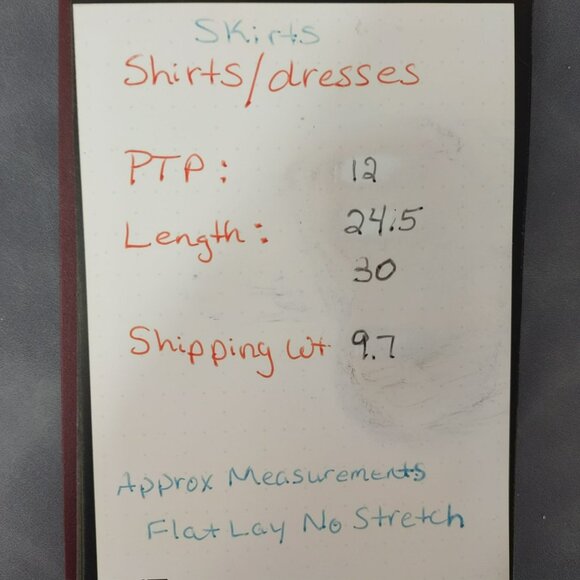 Skirts
Shirts/dresses
PTP: 12
Length: 24.5
30
Shipping wt 9.7
Approx Measurements
Flat Lay No Stretch